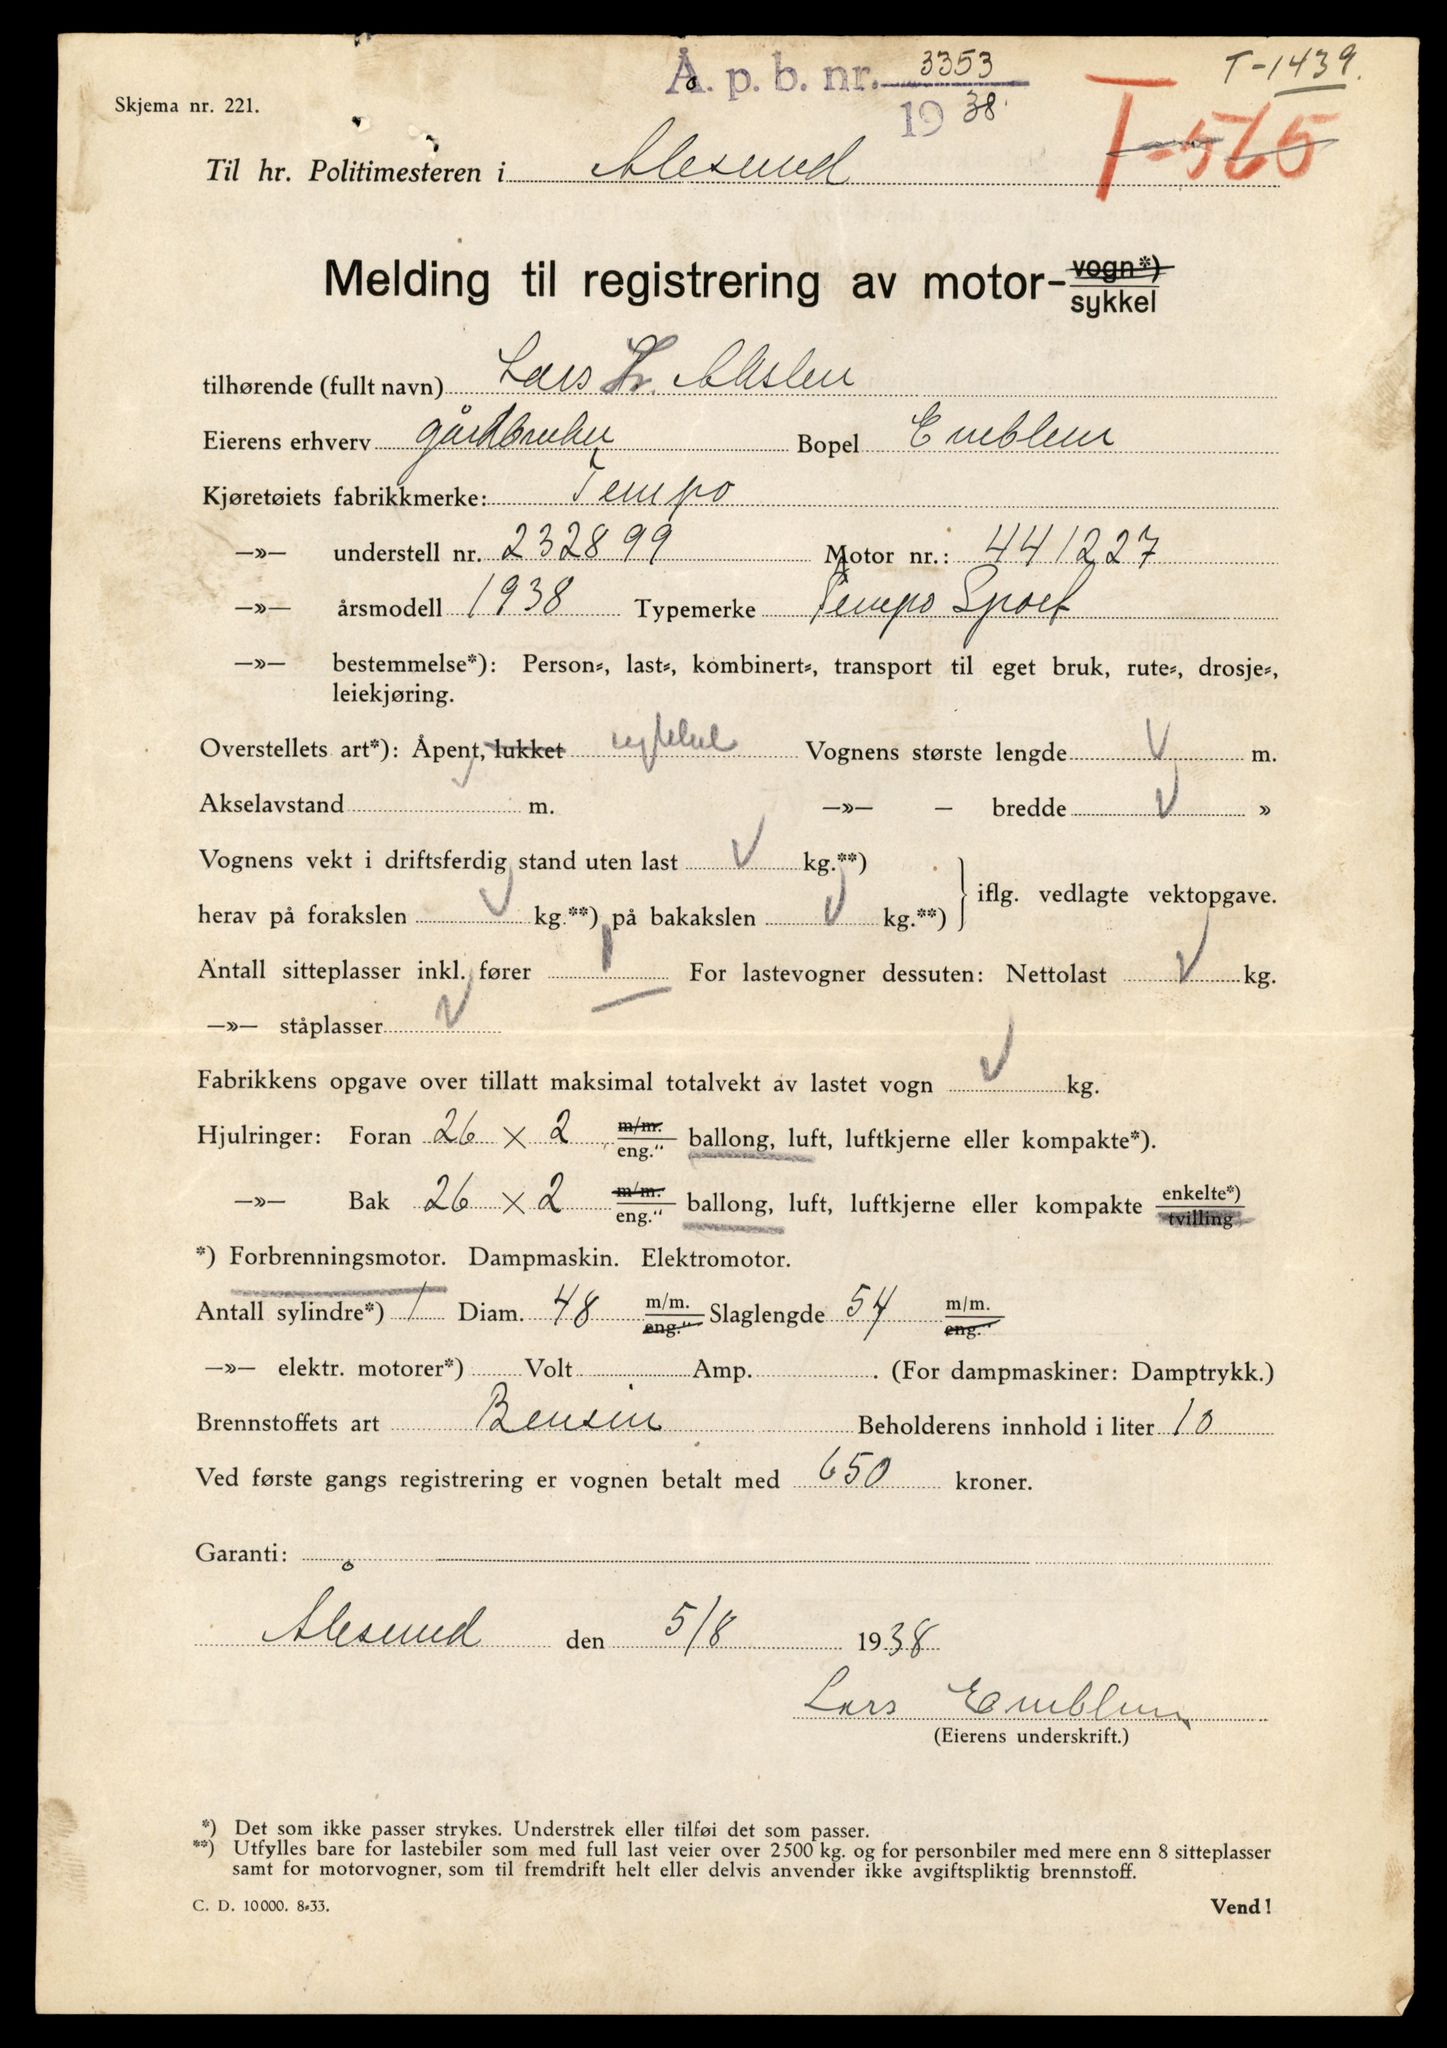 Å. p. b. nr. 3353
1938
T-1439.
T-565
Skjema nr. 221.
Til hr. Politimesteren i Ålesund
Melding til registrering av motor-vogn*)
sykkel
tilhørende (fullt navn) Lars Kr. Akslen
Eierens erhverv gårdbruker Bopel Emblem
Kjøretøiets fabrikkmerke: Tempo
—»— understell nr. 232899 Motor nr.: 441227
—»— årsmodell 1938 Typemerke Tempo Sport
—»— bestemmelse*): Person-, last-, kombinert-, transport til eget bruk, rute-, drosje-,
leiekjøring.
Overstellets art*): Åpent, lukket sykkel Vognens største lengde m.
Akselavstand m. —»— — bredde »
Vognens vekt i driftsferdig stand uten last kg.**)
herav på forakslen kg.**) på bakakslen kg.**) iflg. vedlagte vektopgave.
Antall sitteplasser inkl. fører 1 For lastevogner dessuten: Nettolast kg.
—»— ståplasser
Fabrikkens opgave over tillatt maksimal totalvekt av lastet vogn kg.
Hjulringer: Foran 26 × 2 m/m. eng." ballong, luft, luftkjerne eller kompakte*).
—»— Bak 26 × 2 m/m. eng." ballong, luft, luftkjerne eller kompakte enkelte*) tvilling
*) Forbrenningsmotor. Dampmaskin. Elektromotor.
Antall sylindre*) 1 Diam. 48 m/m. eng." Slaglengde 54 m/m. eng."
—»— elektr. motorer*) Volt Amp. . (For dampmaskiner: Damptrykk.)
Brennstoffets art Bensin Beholderens innhold i liter 10
Ved første gangs registrering er vognen betalt med 650 kroner.
Garanti:
Ålesund den 5/8 1938
Lars Emblem
(Eierens underskrift.)
*) Det som ikke passer strykes. Understrek eller tilføi det som passer.
**) Utfylles bare for lastebiler som med full last veier over 2500 kg. og for personbiler med mere enn 8 sitteplasser
samt for motorvogner, som til fremdrift helt eller delvis anvender ikke avgiftspliktig brennstoff.
C. D. 10000. 8-33.
Vend!